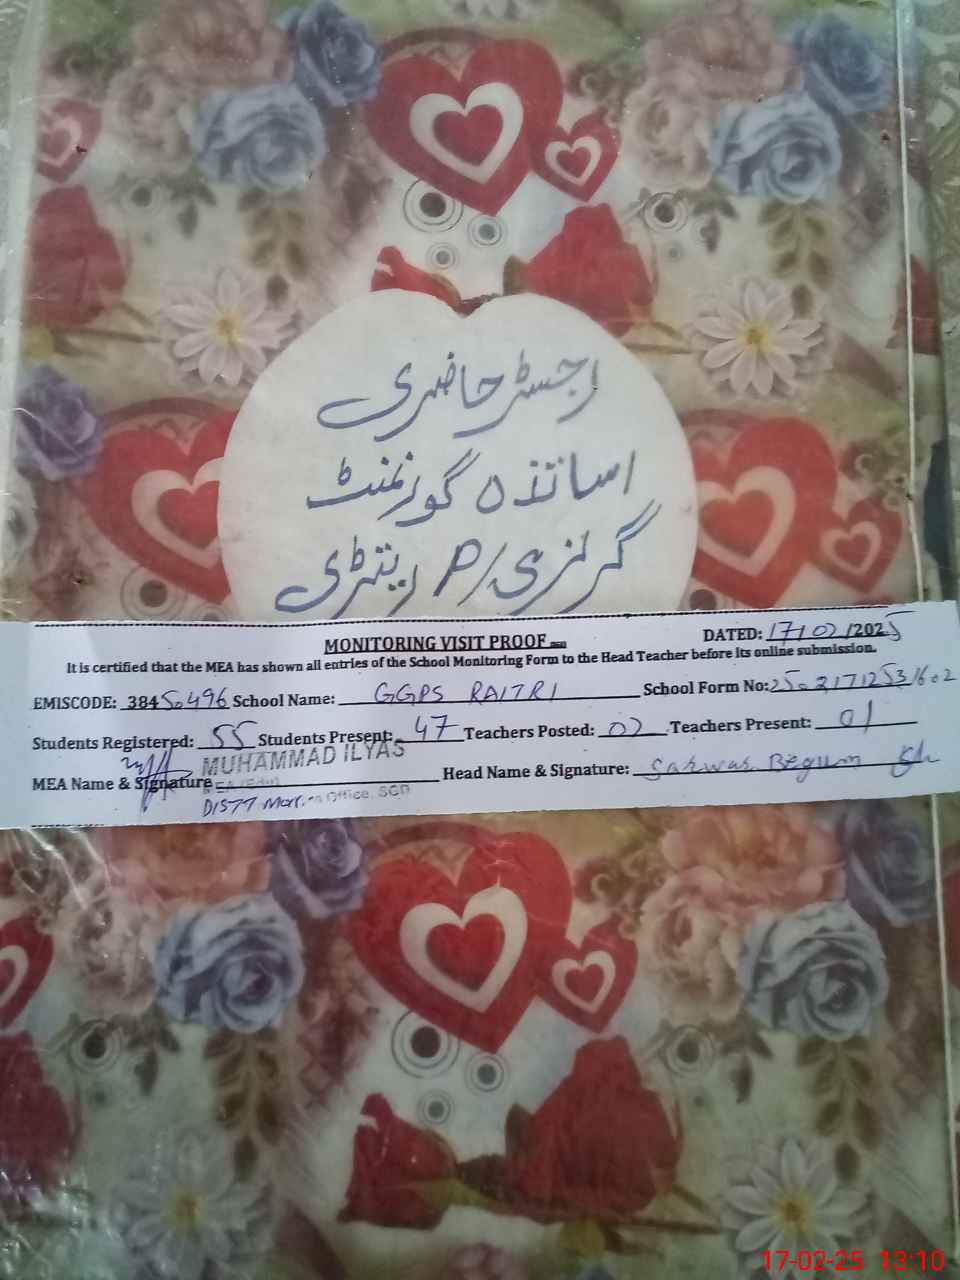 رجسٹر حاضری
اساتذہ گورنمنٹ
گرلز پی/P ریتڑی
MONITORING VISIT PROOF
DATED: 17/02/2025
It is certified that the MEA has shown all entries of the School Monitoring Form to the Head Teacher before its online submission.
EMISCODE: 38450496 School Name: GGPS RAITRI School Form No: 25021712531602
Students Registered: 55 Students Present: 47 Teachers Posted: 02 Teachers Present: 01
MUHAMMAD ILYAS
MEA Name & Signature Head Name & Signature: Sarwar Begum
MEA (Edu)
DISTT Office, SGD
17-02-25 13:10